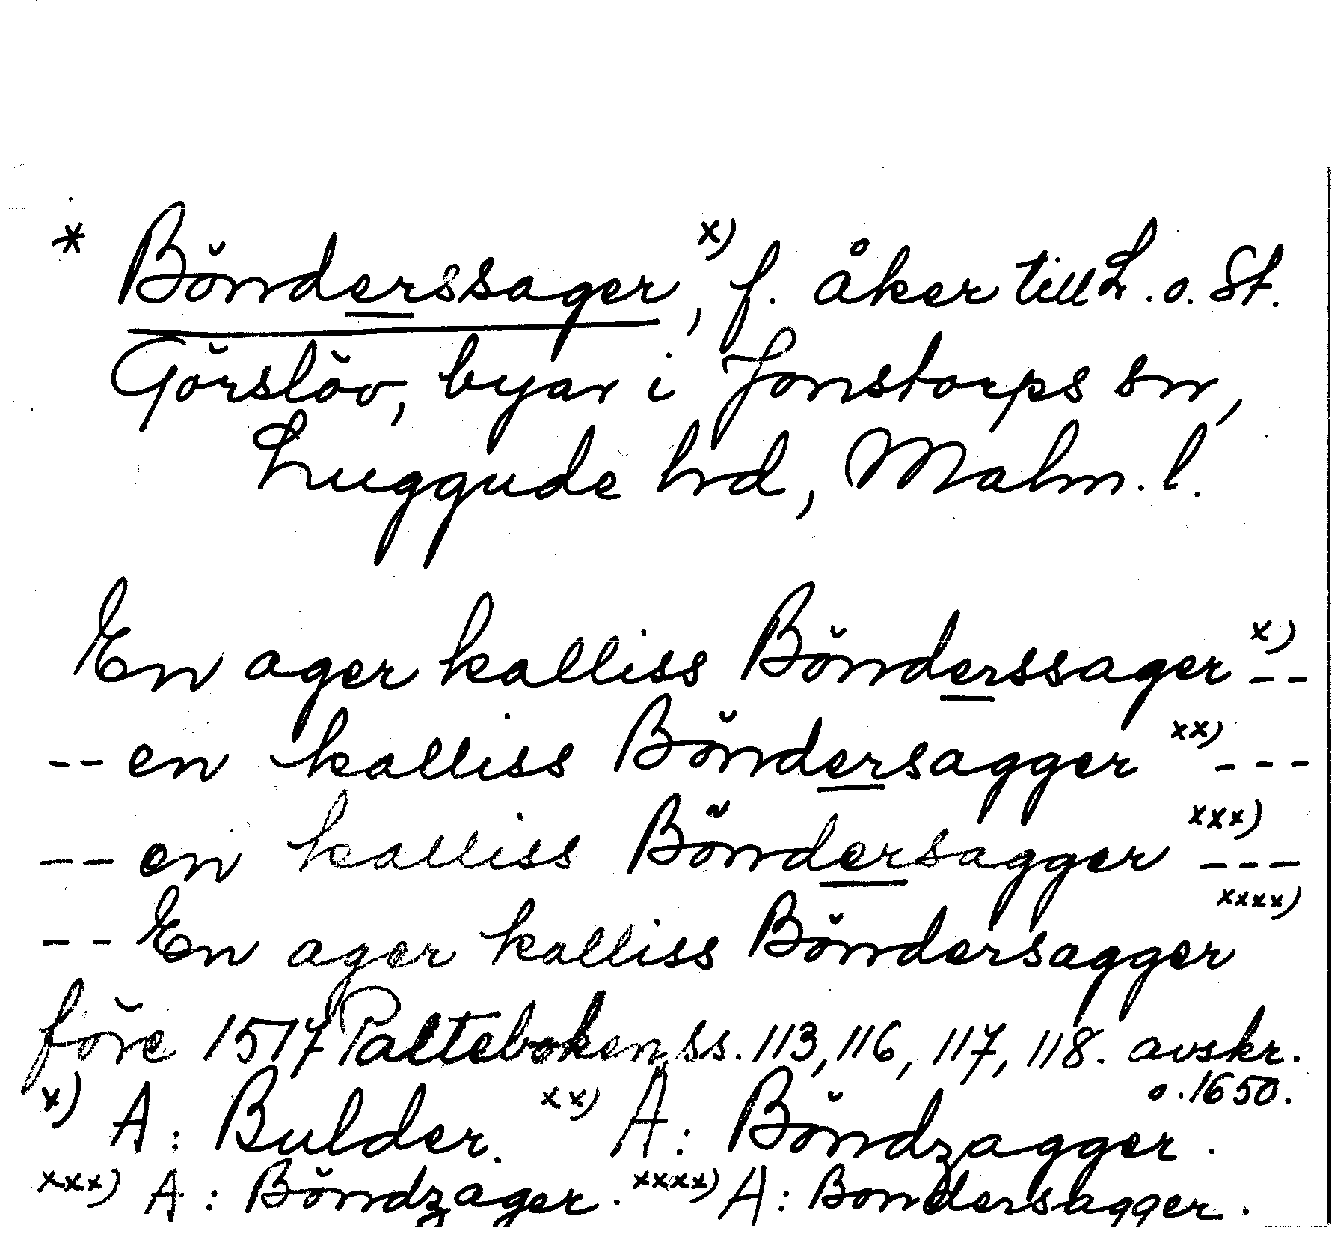 * Bönderssager, x) f. åker till L. o. St.
Görslöv, byar i Jonstorps sn,
Luggude hd, Malm. l.
En ager kalliss Bönderssager x) --
-- en kalliss Böndersagger xx) ---
-- en kalliss Böndersagger xxx) ---
-- En ager kalliss Böndersagger xxxx)
före 1517 Palteboken, ss. 113, 116, 117, 118. avskr.
o. 1650.
x) A: Bulder. xx) A: Böndzagger.
xxx) A: Böndzager. xxxx) A: Bondersagger.